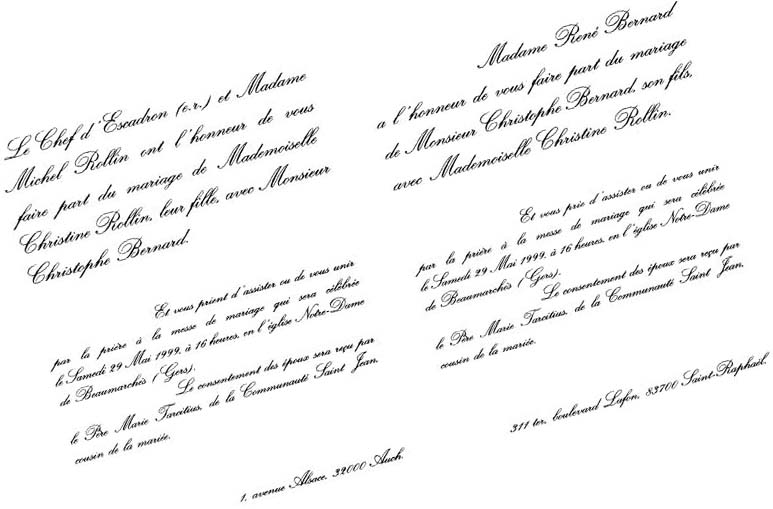 Le Chef d'Escadron (e.r.) et Madame
Michel Rollin ont l'honneur de vous
faire part du mariage de Mademoiselle
Christine Rollin, leur fille, avec Monsieur
Christophe Bernard.
Et vous prient d'assister ou de vous unir
par la prière à la messe de mariage qui sera célébrée
le Samedi 29 Mai 1999, à 16 heures, en l'église Notre-Dame
de Beaumarchès (Gers).
Le consentement des époux sera reçu par
le Père Marie Tarcitius, de la Communauté Saint Jean,
cousin de la mariée.
1, avenue Alsace, 32000 Auch.
Madame René Bernard
a l'honneur de vous faire part du mariage
de Monsieur Christophe Bernard, son fils,
avec Mademoiselle Christine Rollin.
Et vous prie d'assister ou de vous unir
par la prière à la messe de mariage qui sera célébrée
le Samedi 29 Mai 1999, à 16 heures, en l'église Notre-Dame
de Beaumarchès (Gers).
Le consentement des époux sera reçu par
le Père Marie Tarcitius, de la Communauté Saint Jean,
cousin de la mariée.
311 ter, boulevard Lafon, 83700 Saint-Raphaël.